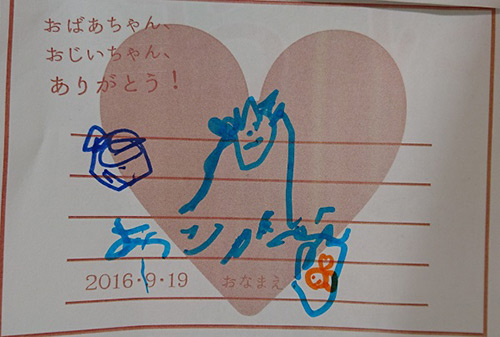 おばあちゃん、
おじいちゃん、
ありがとう！
2016・9・19 おなまえ